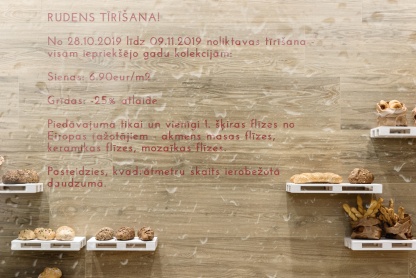 RUDENS TĪRĪŠANA!
No 28.10.2019 līdz 09.11.2019 noliktavas tīrīšana -
visām iepriekšējo gadu kolekcijām:
Sienas: 6.90eur/m2
Grīdas: -25% atlaide
Piedāvājumā tikai un vienīgi 1. šķiras flīzes no
Eiropas ražotājiem - akmens masas flīzes,
keramikas flīzes, mozaīkas flīzes.
Pasteidzies, kvadrātmetru skaits ierobežotā
daudzumā.